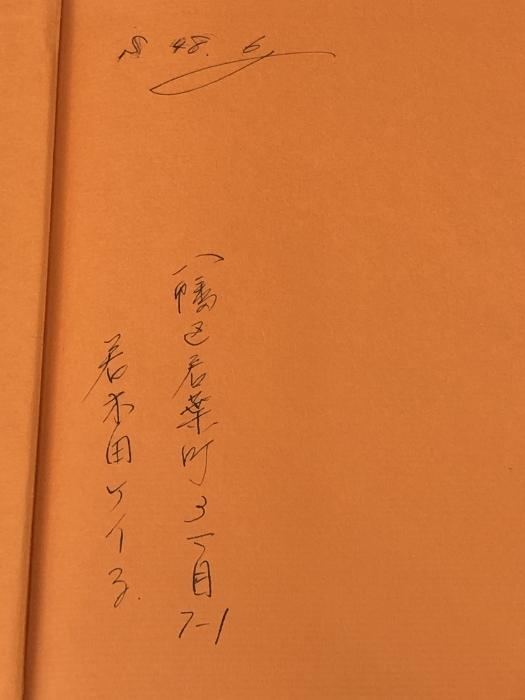 S 48. 6
八幡区若葉町3丁目7-1
若木田ケイ子